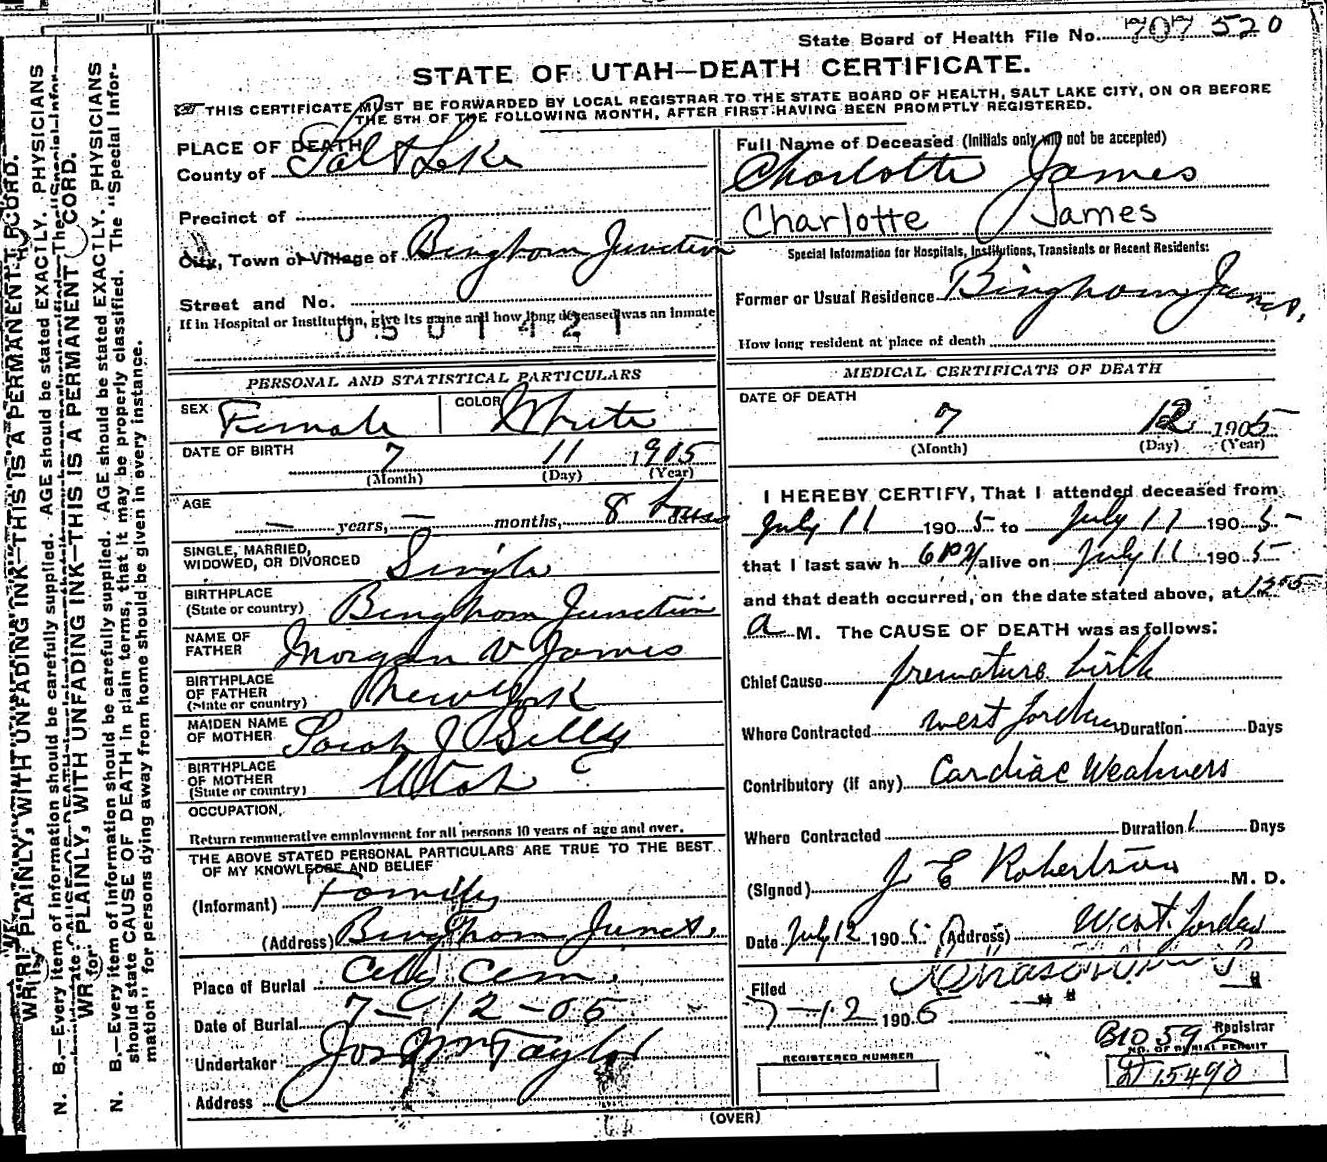 State Board of Health File No. 707 520
STATE OF UTAH—DEATH CERTIFICATE.
THIS CERTIFICATE MUST BE FORWARDED BY LOCAL REGISTRAR TO THE STATE BOARD OF HEALTH, SALT LAKE CITY, ON OR BEFORE
THE 5TH OF THE FOLLOWING MONTH, AFTER FIRST HAVING BEEN PROMPTLY REGISTERED.
PLACE OF DEATH
County of Salt Lake
Precinct of
City, Town or Village of Bingham Junction
Street and No.
If in Hospital or Institution, give its name and how long deceased was an inmate
0501421
PERSONAL AND STATISTICAL PARTICULARS
SEX Female COLOR White
DATE OF BIRTH 7 11 1905
(Month) (Day) (Year)
AGE — years, — months, 8 hours days
SINGLE, MARRIED,
WIDOWED, OR DIVORCED Single
BIRTHPLACE
(State or country) Bingham Junction
NAME OF
FATHER Morgan V James
BIRTHPLACE
OF FATHER
(State or country) New York
MAIDEN NAME
OF MOTHER Sarah J
BIRTHPLACE
OF MOTHER
(State or country) Utah
OCCUPATION,
Return remunerative employment for all persons 10 years of age and over.
THE ABOVE STATED PERSONAL PARTICULARS ARE TRUE TO THE BEST
OF MY KNOWLEDGE AND BELIEF
(Informant) Family
(Address) Bingham Junct.
Place of Burial City Cem.
Date of Burial 7-12-05
Undertaker Jos Wm Taylor
Address
Full Name of Deceased (Initials only will not be accepted)
Charlotte James
Charlotte James
Special Information for Hospitals, Institutions, Transients or Recent Residents:
Former or Usual Residence Bingham Junc.
How long resident at place of death
MEDICAL CERTIFICATE OF DEATH
DATE OF DEATH
7 12 1905
(Month) (Day) (Year)
I HEREBY CERTIFY, That I attended deceased from
July 11 190 5 to July 11 190 5
that I last saw h er alive on July 11 190 5
and that death occurred, on the date stated above, at
a M. The CAUSE OF DEATH was as follows:
Chief Cause premature birth
Where Contracted West Jordan Duration Days
Contributory (if any) Cardiac Weakness
Where Contracted Duration 1 Days
(Signed) J E Robertson M. D.
Date July 12 190 5 (Address) West Jordan
Filed
7-12 190 5
Registrar
B1059
NO. OF BURIAL PERMIT
15490
REGISTERED NUMBER
(OVER)
WRITE PLAINLY, WITH UNFADING INK—THIS IS A PERMANENT RECORD.
N. B.—Every item of information should be carefully supplied. AGE should be stated EXACTLY. PHYSICIANS
WRITE PLAINLY, WITH UNFADING INK—THIS IS A PERMANENT RECORD.
N. B.—Every item of information should be carefully supplied. AGE should be stated EXACTLY. PHYSICIANS
should state CAUSE OF DEATH in plain terms, that it may be properly classified. The "Special Infor-
mation" for persons dying away from home should be given in every instance.